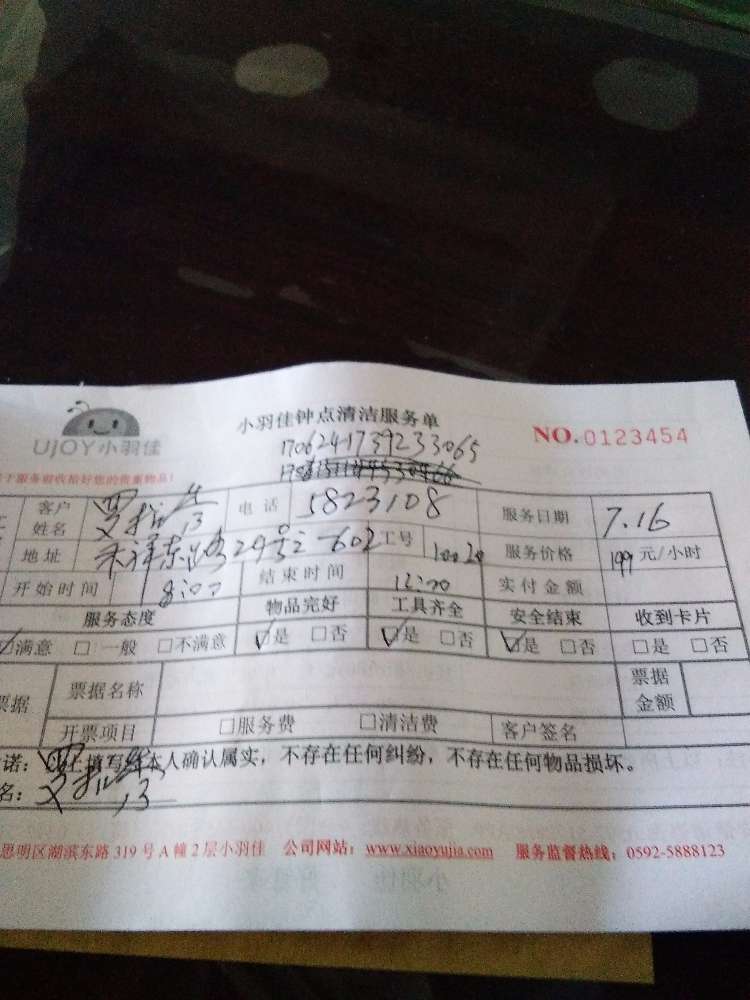 小羽佳钟点清洁服务单
UJOY小羽佳
NO.0123454
1706241739233065
服务前收拾好您的贵重物品!
客户姓名 电话 5823108 服务日期 7.16
地址 禾祥东路 29号之-602 工号 10020 服务价格 199 元/小时
开始时间 8:00 结束时间 12:00 实付金额
服务态度 物品完好 工具齐全 安全结束 收到卡片
☑满意 □一般 □不满意 ☑是 □否 ☑是 □否 ☑是 □否 □是 □否
票据 票据名称 票据金额
开票项目 □服务费 □清洁费 客户签名
诺: 以上填写经本人确认属实,不存在任何纠纷,不存在任何物品损坏。
名:
思明区湖滨东路 319 号 A 幢 2 层小羽佳 公司网站: www.xiaoyujia.com 服务监督热线: 0592-5888123